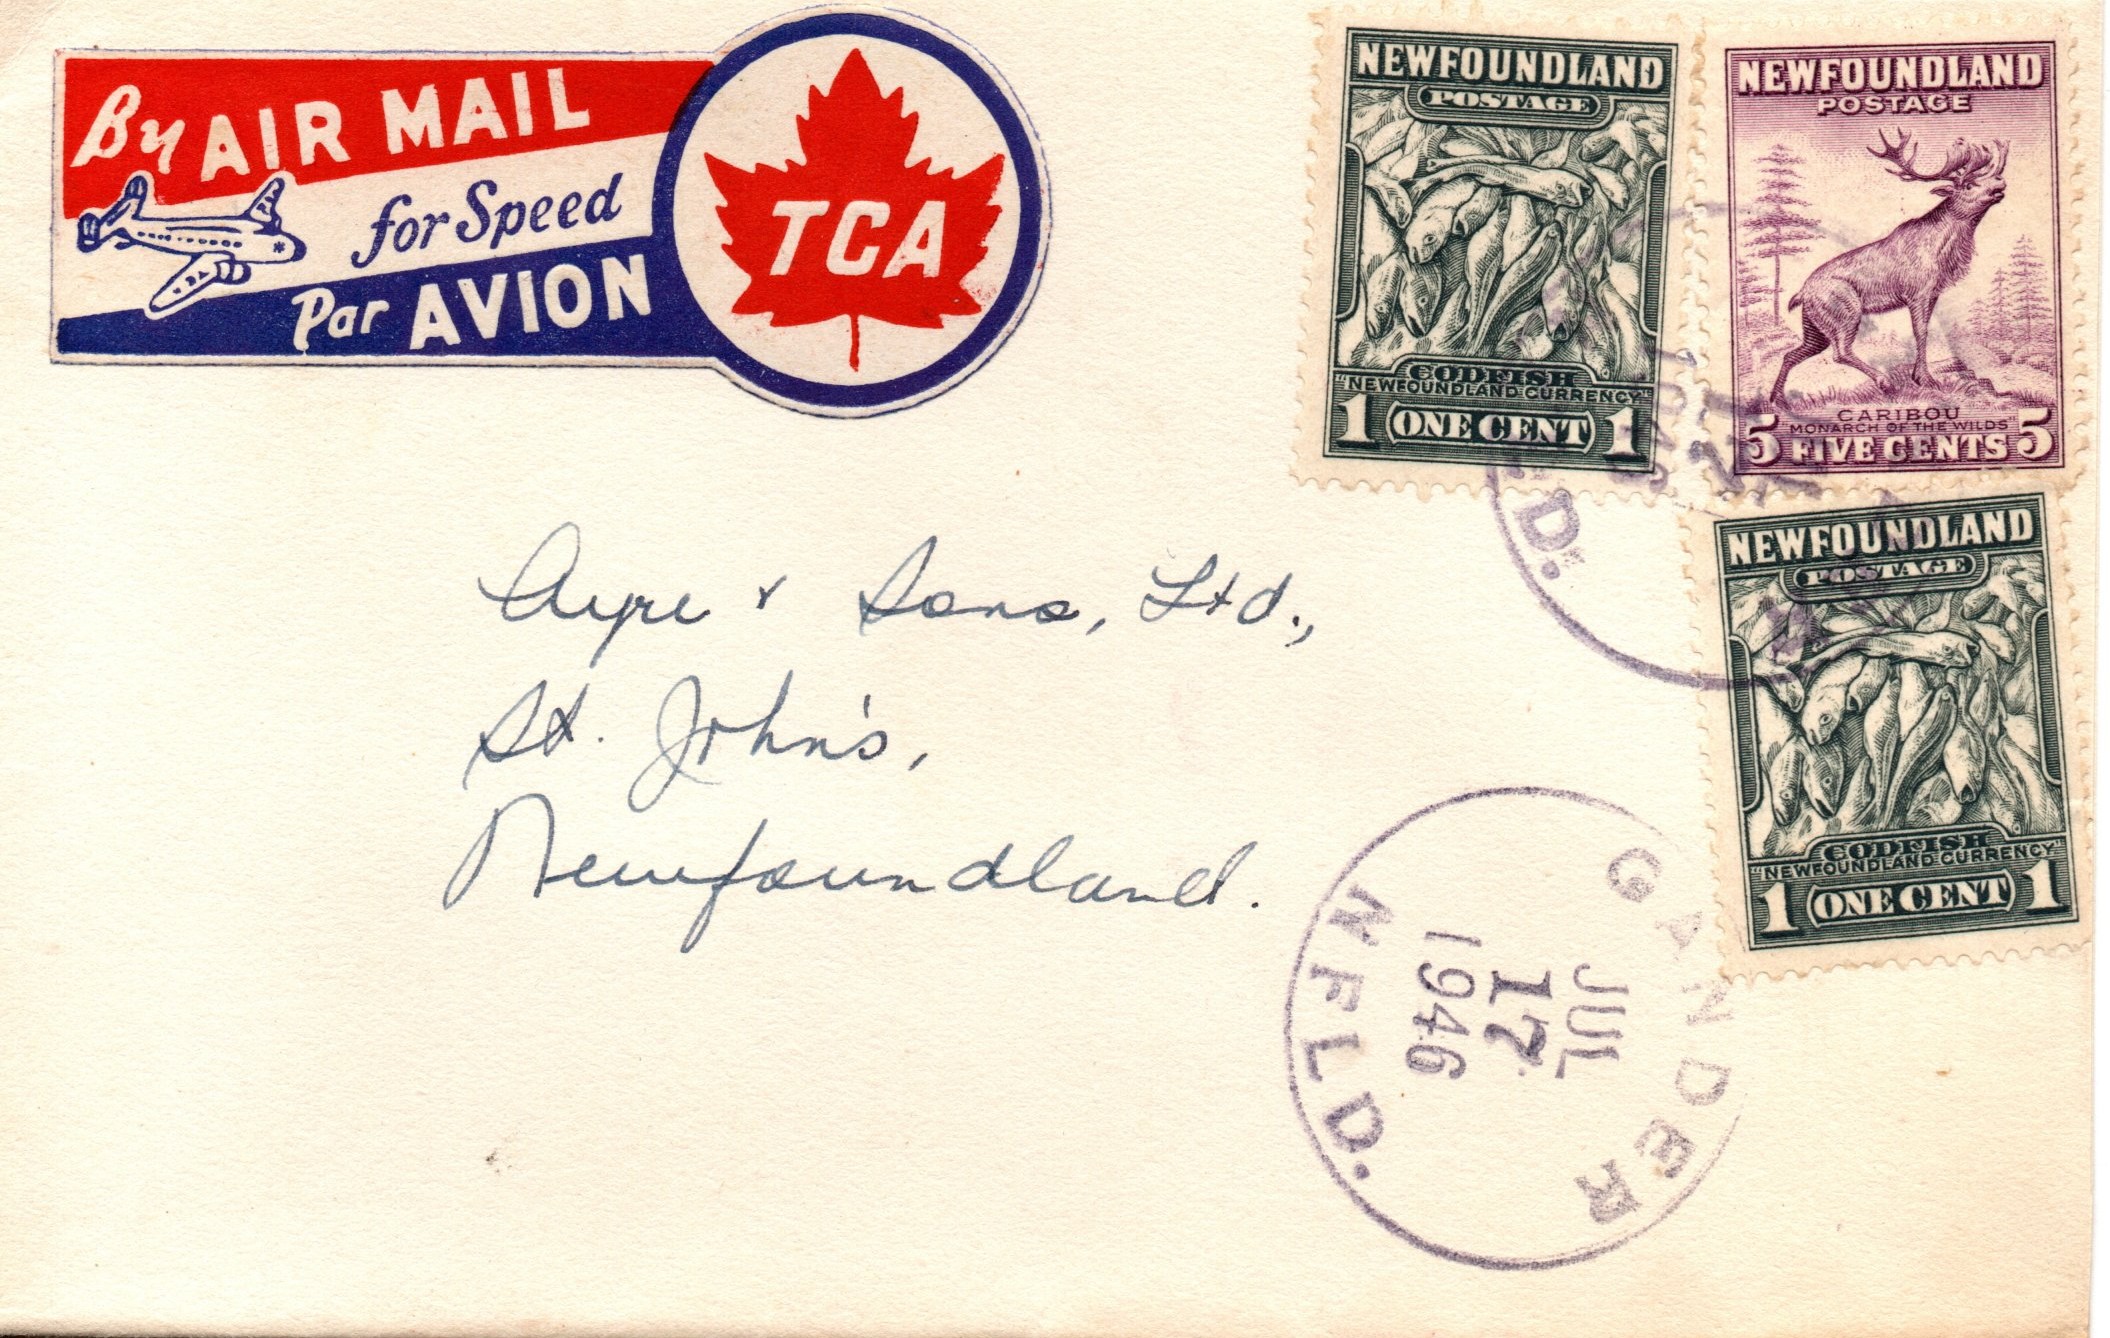 By AIR MAIL
for Speed
Par AVION
TCA
NEWFOUNDLAND
POSTAGE
CODFISH
"NEWFOUNDLAND CURRENCY"
1 ONE CENT 1
NEWFOUNDLAND
POSTAGE
CARIBOU
"MONARCH OF THE WILDS"
5 FIVE CENTS 5
NEWFOUNDLAND
POSTAGE
CODFISH
"NEWFOUNDLAND CURRENCY"
1 ONE CENT 1
Ayre & Sons, Ltd.,
St. John's,
Newfoundland.
GANDER
JUL
17
1946
NFLD.
17
1946
LD.